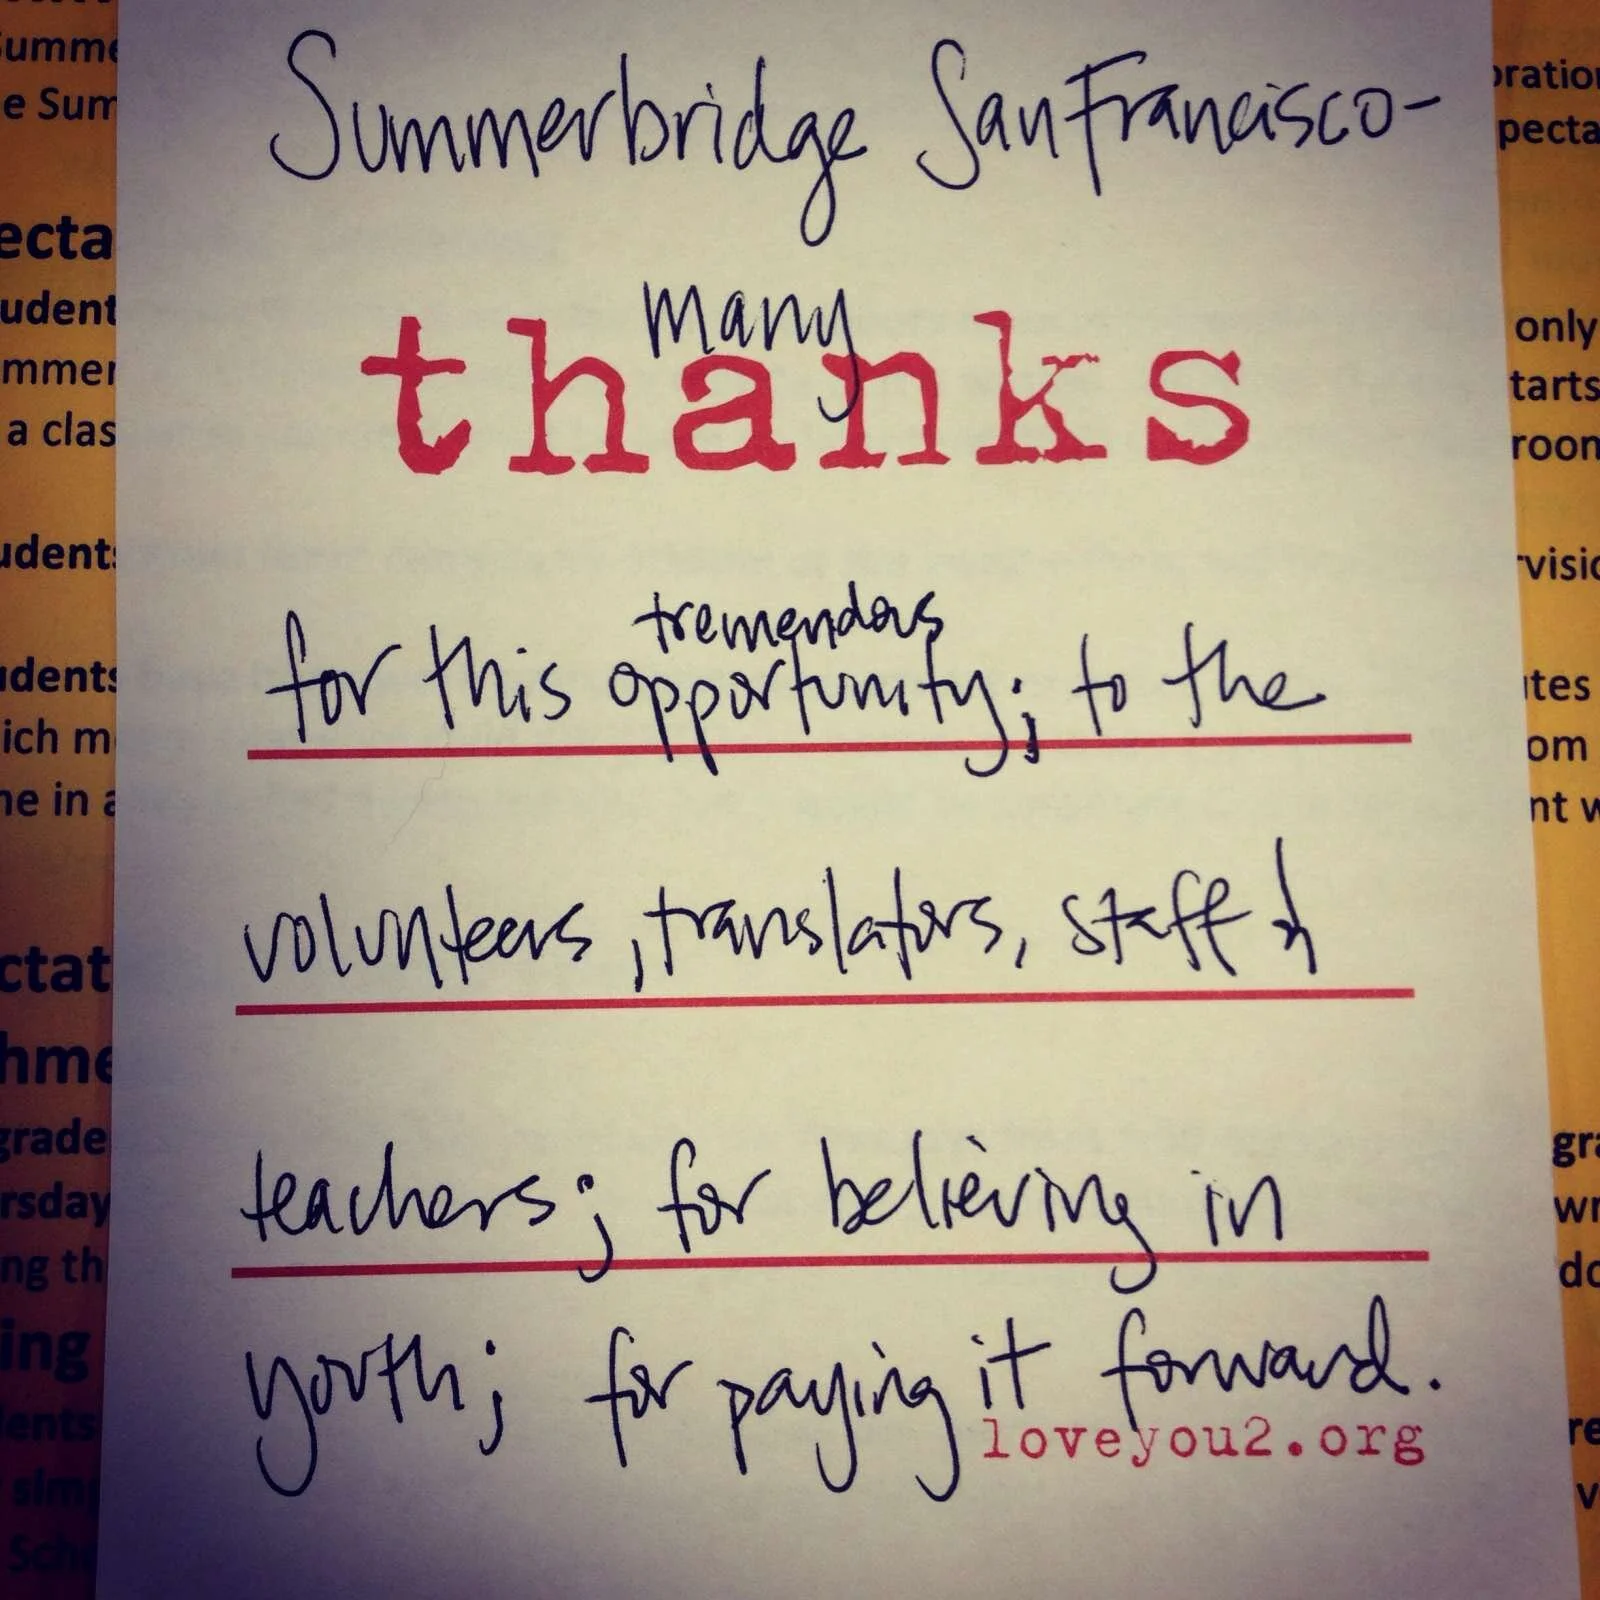 Summerbridge San Francisco-
many
thanks
tremendous
for this opportunity; to the
volunteers, translators, staff &
teachers; for believing in
youth; for paying it forward.
loveyou2.org
Summe
e Sum
ecta
udent
mmer
a clas
udents
udents
ich m
ne in a
ctat
hme
grade
rsday
ng th
ing
dents
simp
Scho
oratio
pecta
only
tarts
room
rvisio
utes
om
nt w
gra
wr
do
re
v